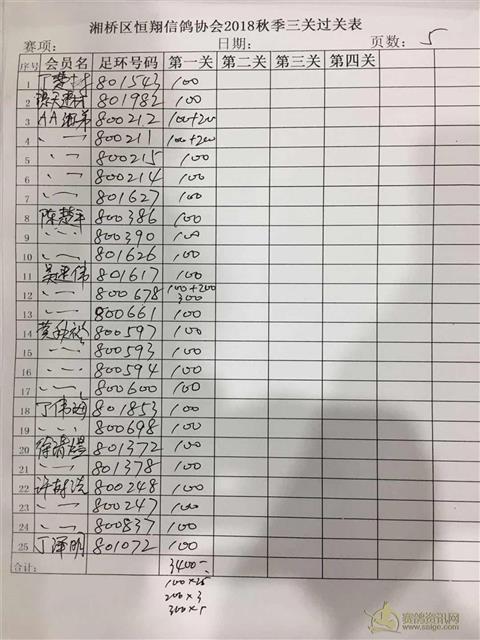 湘桥区恒翔信鸽协会2018秋季三关过关表
赛项: 日期: 页数: 5
序号 会员名 足环号码 第一关 第二关 第三关 第四关
1 丁楚 801543 100
2 801982 100
3 AA 800212 100+200
4 〃 800211 100+200
5 〃 800215 100
6 〃 800214 100
7 〃 801627 100
8 陈楚平 800386 100
9 〃 800390 100
10 〃 801626 100
11 吴建伟 801617 100
12 〃 800678 100+200
300
13 〃 800661 100
14 黄 800597 100
15 〃 800593 100
16 〃 800594 100
17 〃 800600 100
18 丁伟 801853 100
19 〃 800698 100
20 徐 801372 100
21 〃 801378 100
22 许 800248 100
23 〃 800247 100
24 〃 800837 100
25 丁泽明 801072 100
合计: 3400-
100×25
200×3
300×1
赛鸽资讯网
www.saige.com